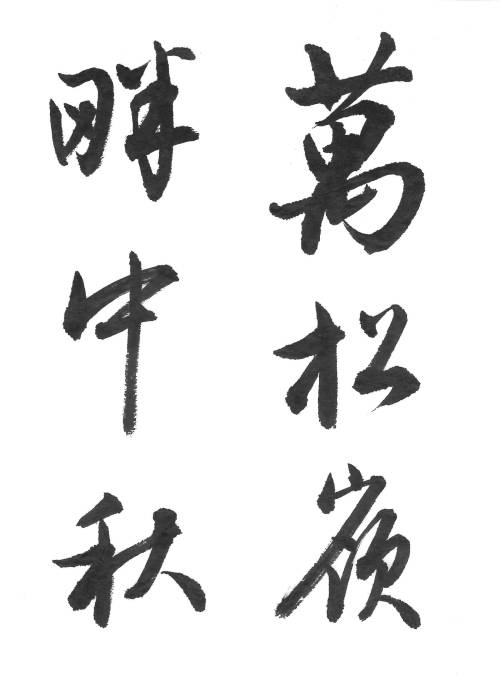 萬松嶺
畔中秋